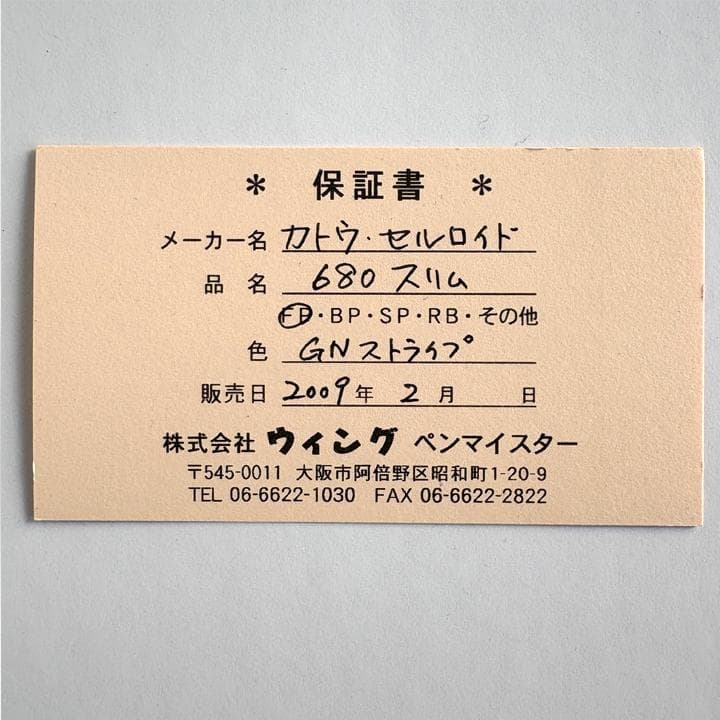 * 保証書 *
メーカー名 カトウ・セルロイド
品名 680 スリム
FP・BP・SP・RB・その他
色 GNストライプ
販売日 2009年 2月 日
株式会社 ウイング ペンマイスター
〒545-0011 大阪市阿倍野区昭和町1-20-9
TEL 06-6622-1030 FAX 06-6622-2822